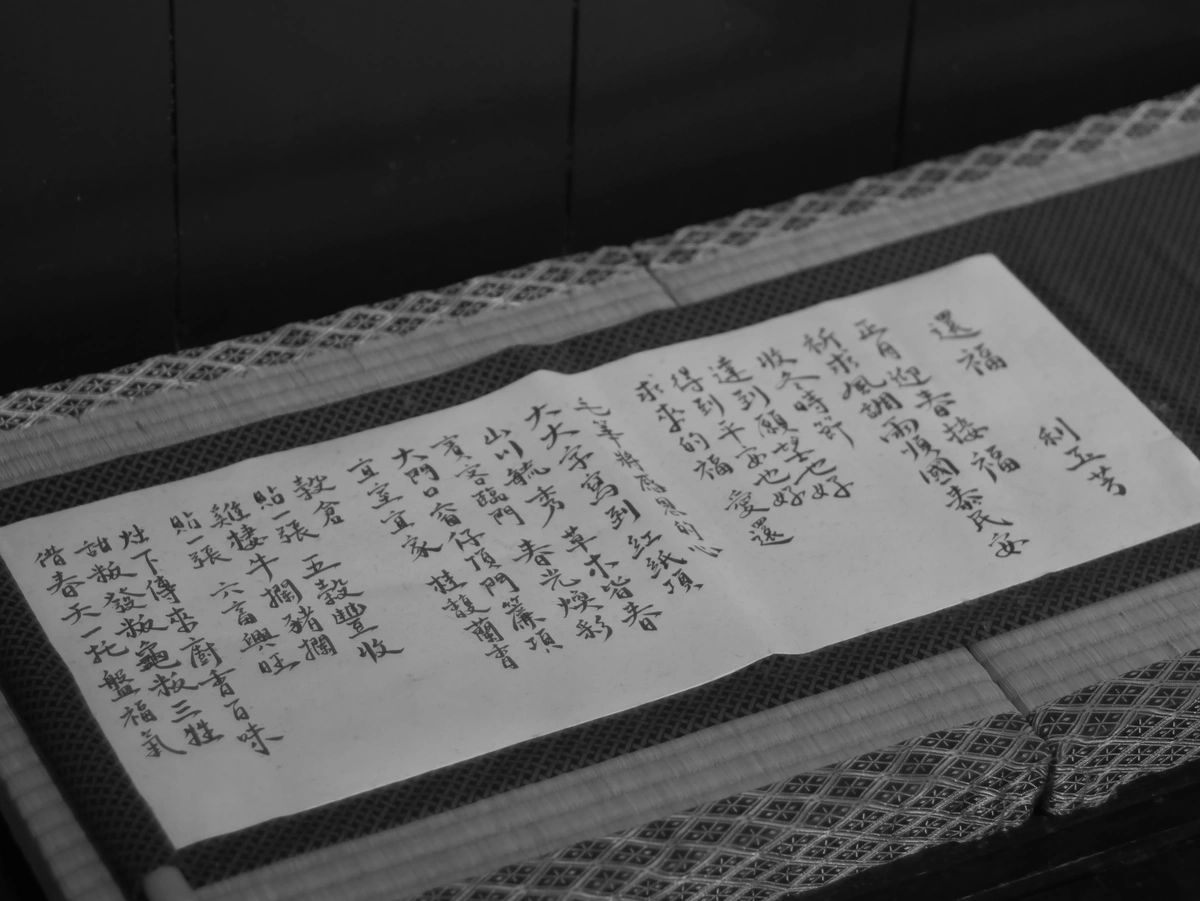 還福
利玉芳
正月迎春接福
祈求風調雨順國泰民安
收冬時節
達到願望也好
得到平安也好
求來的福 愛還
毛筆將感恩的心
大大字寫到紅紙項
山川毓秀 草木皆春
賓客臨門 春光煥彩
大門口 屘仔頂門簾項
宜室宜家 桂馥蘭香
穀倉
貼一張 五穀豐收
雞棲牛欄豬欄
貼一張 六畜興旺
灶下傳來廚香百味
甜粄發粄龜粄三牲
借春天一托盤福氣